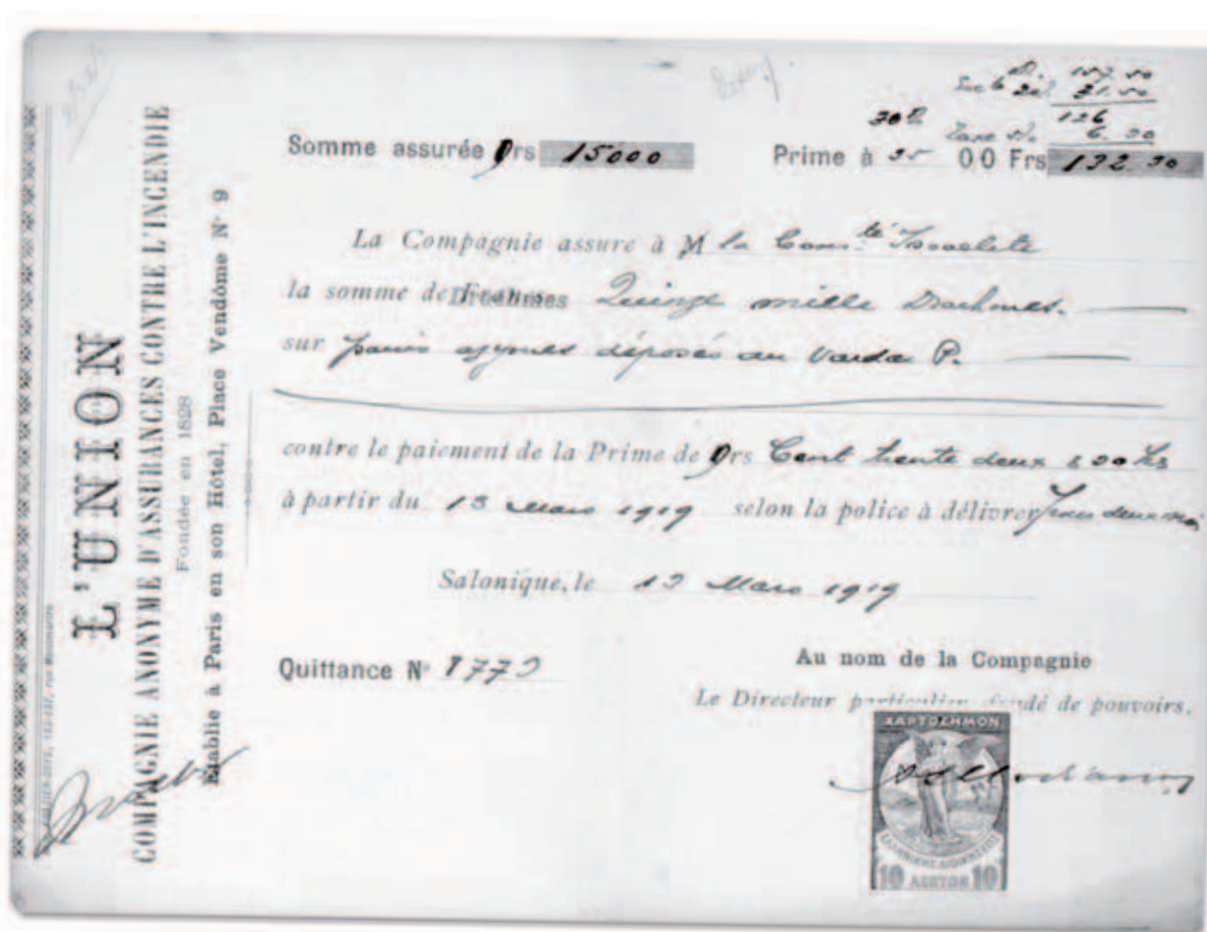 L'UNION
COMPAGNIE ANONYME D'ASSURANCES CONTRE L'INCENDIE
Fondée en 1828
Etablie à Paris en son Hôtel, Place Vendôme N° 9
157.50
31.50
126
Taxe 6.30
Somme assurée Drs 15000
Prime à 35 00 Frs 132.30
La Compagnie assure à M la Com.té Israelite
la somme de Drachmes Quinze mille Drachmes.
sur pains azymes déposés au Vardar P.
contre le paiement de la Prime de Drs Cent trente deux & 30
à partir du 13 Mars 1919 selon la police à délivrer pour deux mois
Salonique, le 13 Mars 1919
Quittance N° 8773
Au nom de la Compagnie
Le Directeur particulier, fondé de pouvoirs.
ΧΑΡΤΟΣΗΜΟΝ
10 ΛΕΠΤΩΝ 10